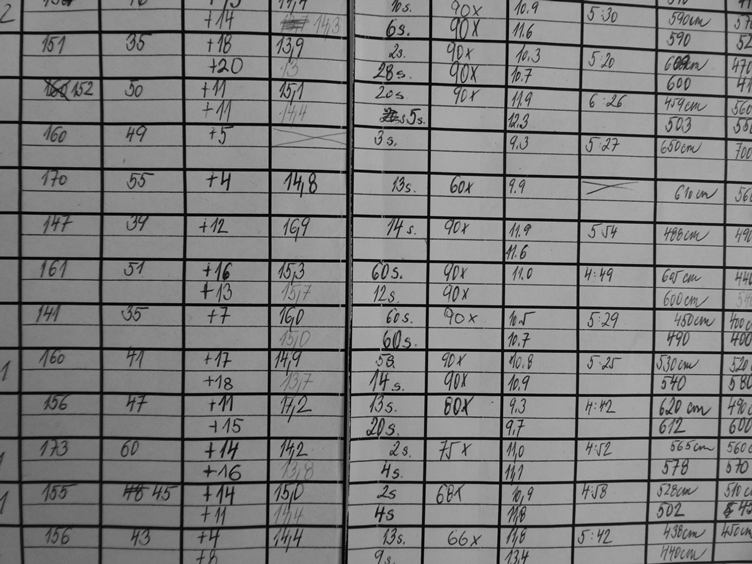 2 +14 14,3 6s. 90x 11.6 590
151 35 +18 13,9 2s. 90x 10.3 5:20
+20 13 28s. 90x 10.7 600
152 50 +11 15,1 20s 90x 11.9 6:26 459cm 560
+11 14,4 5s. 12.3 503
160 49 +5 3s. 9.3 5:27 650cm 700
170 55 +4 14,8 13s. 60x 9.9 610cm
147 39 +12 16,9 14s. 90x 11.9 5:54 488cm
11.6
161 51 +16 15,3 60s. 90x 11.0 4:49 440
+13 15,7 12s. 90x 600cm
141 35 +7 16,0 60s. 90x 10.5 5:29 450cm
15,0 60s. 10.7 490 400
1 160 41 +17 14,9 5s. 90x 10.8 5:25 530cm 520
+18 13,7 14s. 90x 10.9 540 580
156 47 +11 17,2 13s. 80x 9.3 4:42 620cm
+15 20s. 9.7 612 600
173 60 +14 14,2 2s. 75x 11,0 4:52 565cm 560
+16 13,8 4s. 578 570
1 155 45 +14 15,0 2s 68x 10,9 4:58 528cm
+11 14,4 4s 11,8 502
156 43 +4 14,4 13s. 66x 11,8 5:42 438cm 450cm
+8 9s. 13,4 440cm